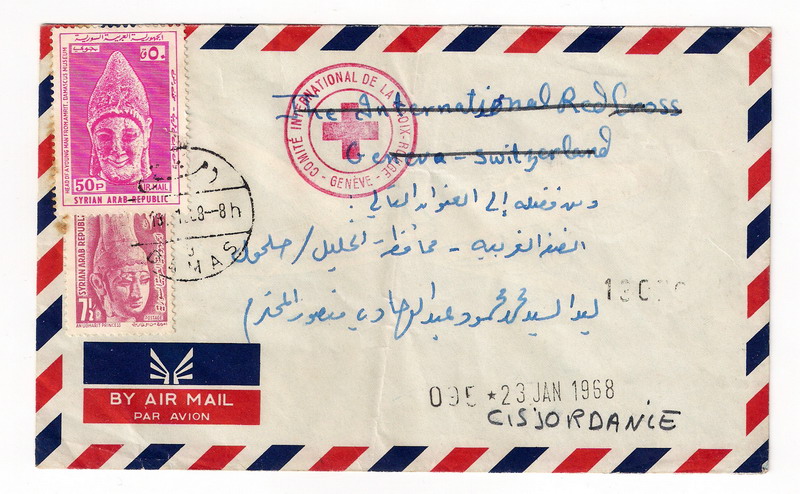 الجمهورية العربية السورية
HEAD OF A YOUNG MAN FROM AMRIT. DAMASCUS MUSEUM
50P
AIR MAIL
SYRIAN ARAB REPUBLIC
SYRIAN ARAB REPUBLIC
7½
POSTAGE
AN UGHARIT PRINCESS
8h
COMITÉ INTERNATIONAL DE LA CROIX-ROUGE
- GENÈVE -
The International Red Cross
Geneva - Switzerland
ومن فضله إلى العنوان التالي:
الضفة الغربية - محافظة الخليل / حلحول
ليد السيد محمد محمود عبد الهادي منصور المحترم
095 * 23 JAN 1968
CISJORDANIE
BY AIR MAIL
PAR AVION